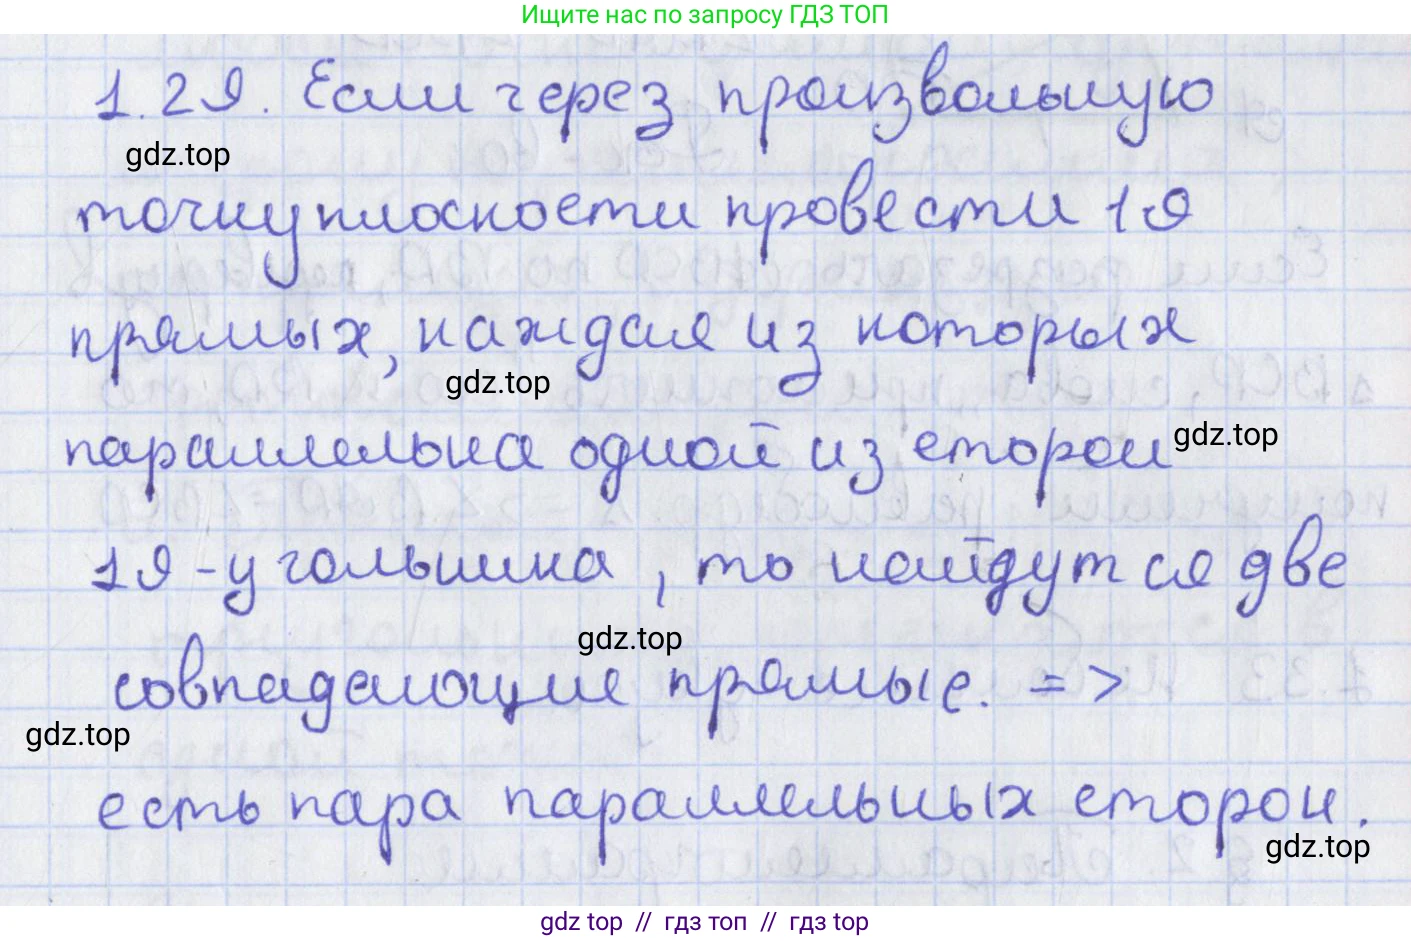 Ищите нас по запросу ГДЗ ТОП
1.29. Если через произвольную
gdz.top
точку плоскости провести 19
прямых, каждая из которых
gdz.top
параллельна одной из сторон
gdz.top
19-угольника, то найдутся две
gdz.top
совпадающие прямые. =>
gdz.top
есть пара параллельных сторон.
gdz.top
gdz top // гдз топ // гдз top